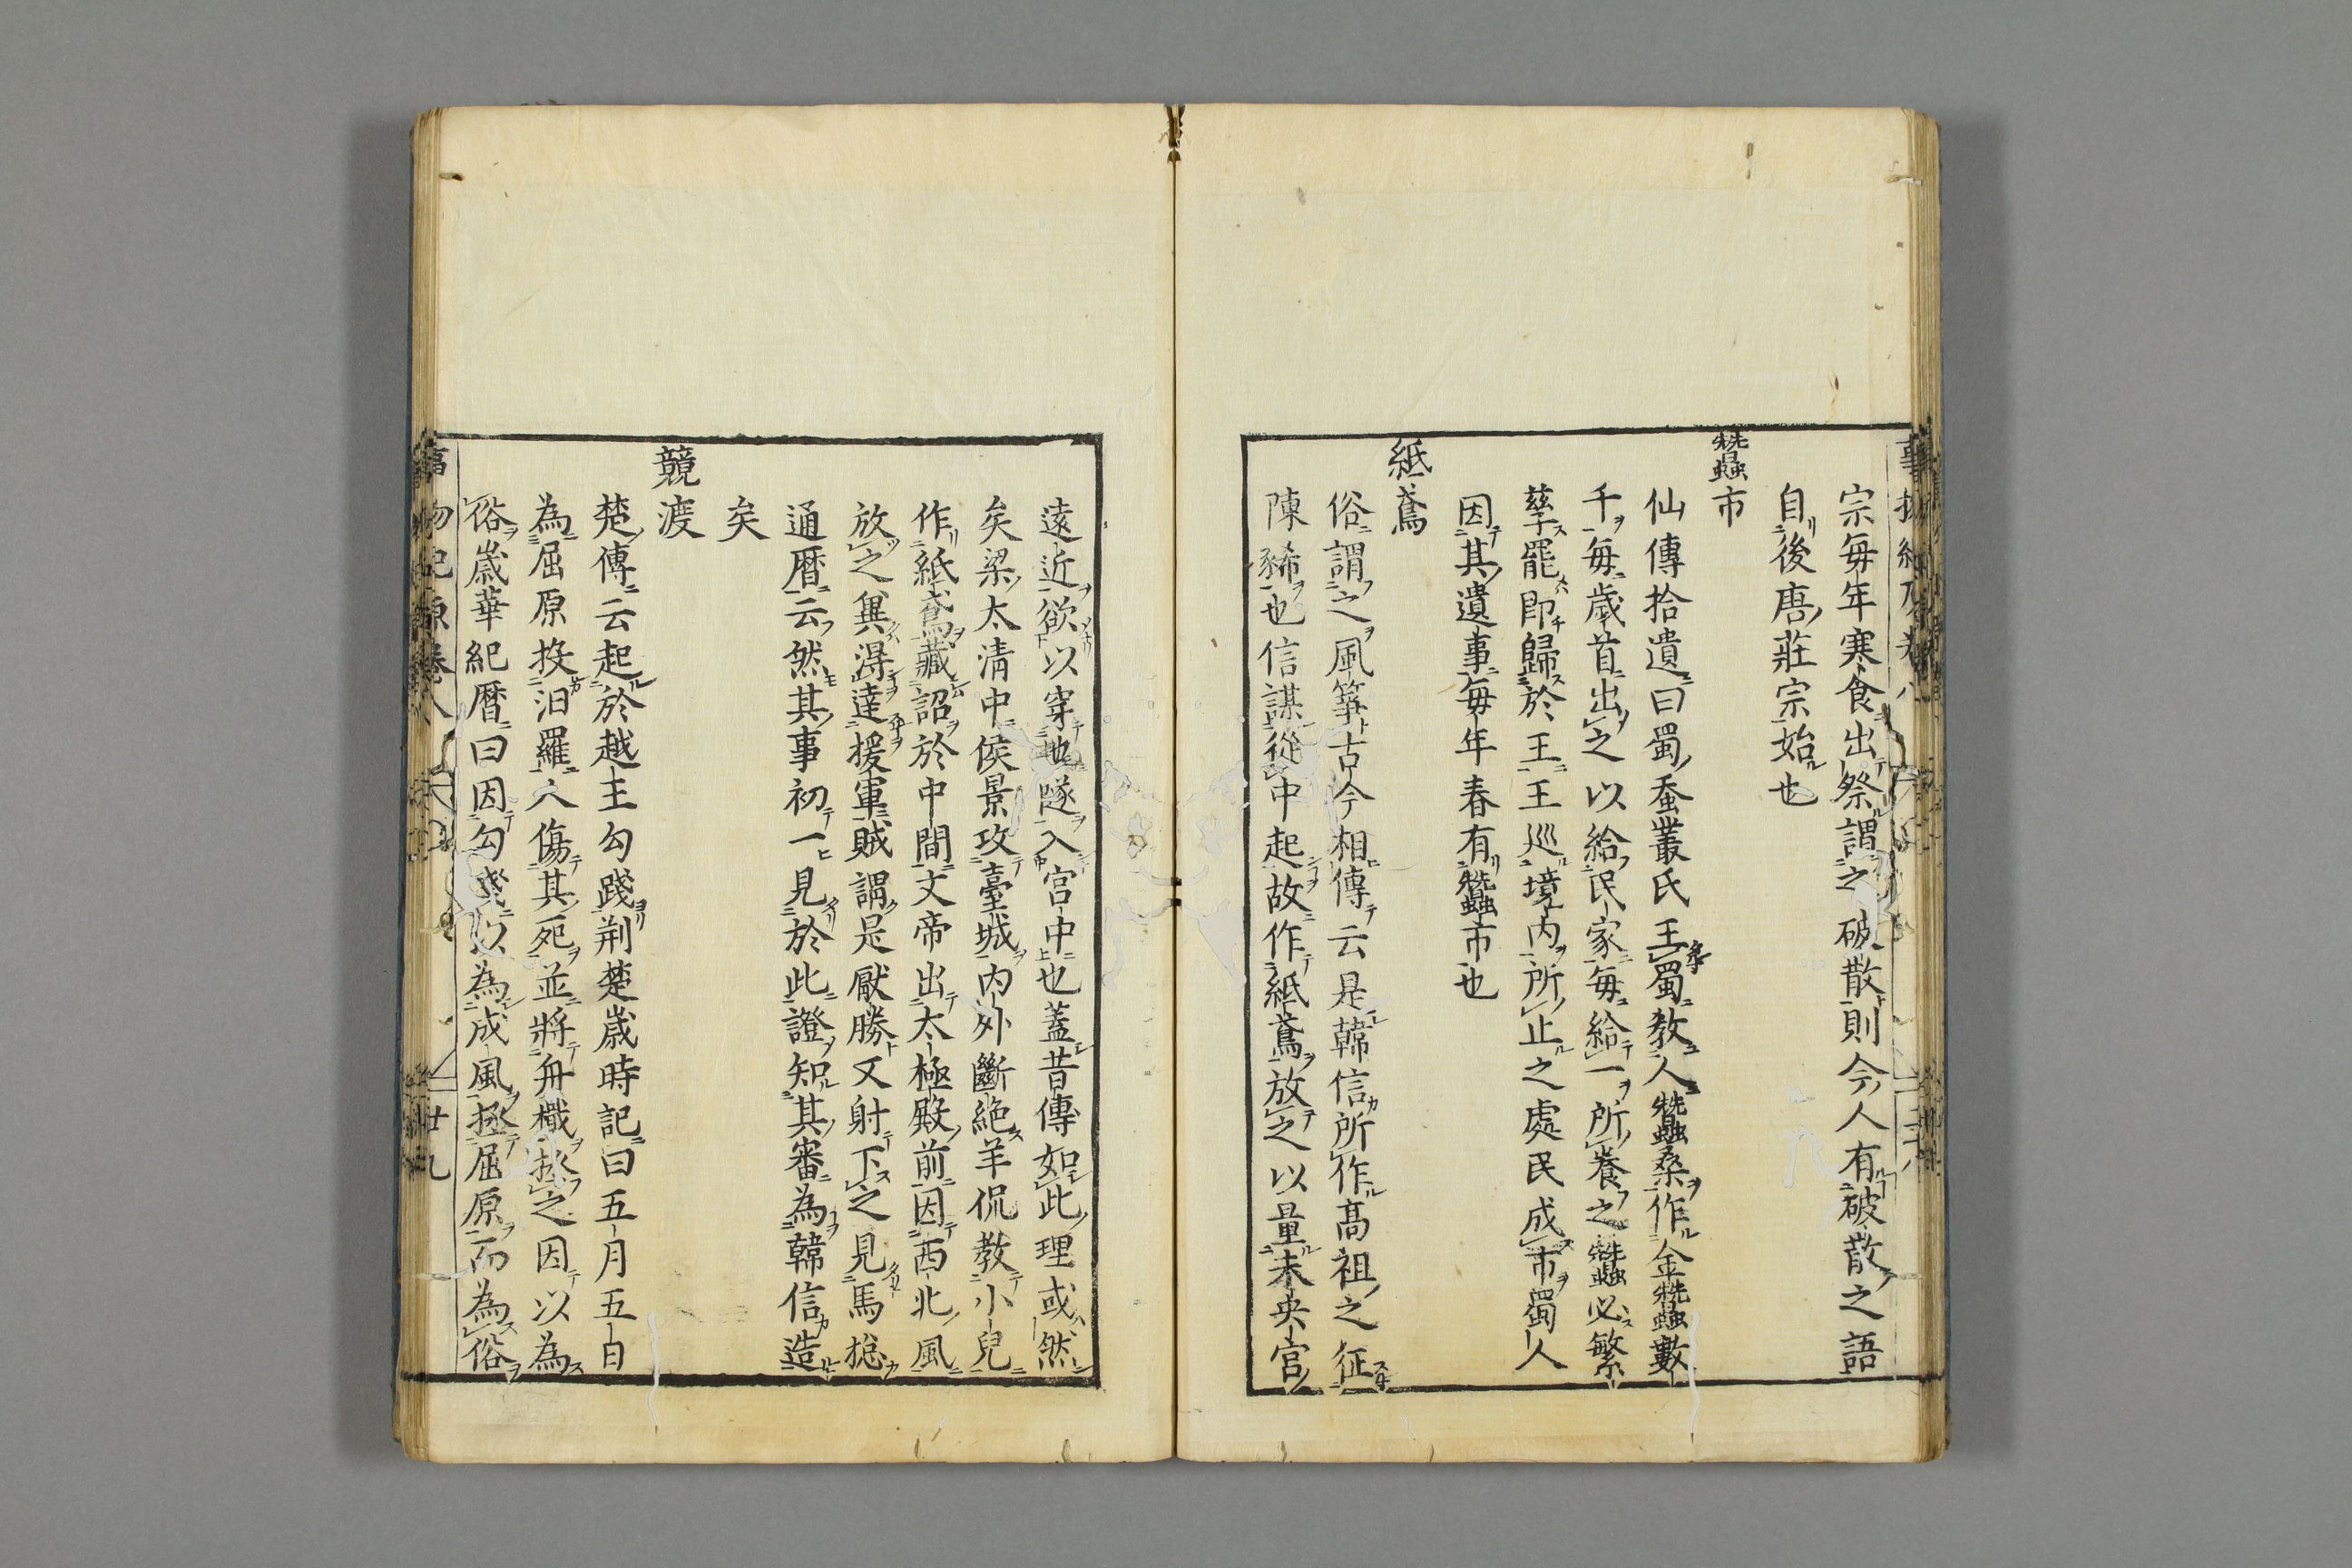 宗毎年寒食出祭謂之破散則今人有破散之語
自後唐莊宗始也
蠶市
仙傳拾遺曰蜀蚕叢氏王蜀教人蠶桑作金蠶數
千毎歳首出之以給民家毎給一所養之蠶必繁
孳罷即歸於王王巡境内所止之處民成市蜀人
因其遺事毎年春有蠶市也
紙鳶
俗謂之風筝古今相傳云是韓信所作髙祖之征
陳豨也信謀從中起故作紙鳶放之以量未央宫
遠近欲以穿地隧入宫中也蓋昔傳如此理或然
矣梁太清中侯景攻臺城内外斷絶羊侃教小兒
作紙鳶藏詔於中間文帝出太極殿前因西北風
放之兾得達援軍賊謂是厭勝又射下之見馬揔
通暦云然其事初一見於此證知其審為韓信造
矣
競渡
楚傳云起於越王勾踐荆楚歳時記曰五月五日
為屈原投汨羅人傷其死並將舟檝拯之因以為
俗歳華紀暦曰因勾踐以為成風拯屈原而為俗
事物紀原卷八 廿九